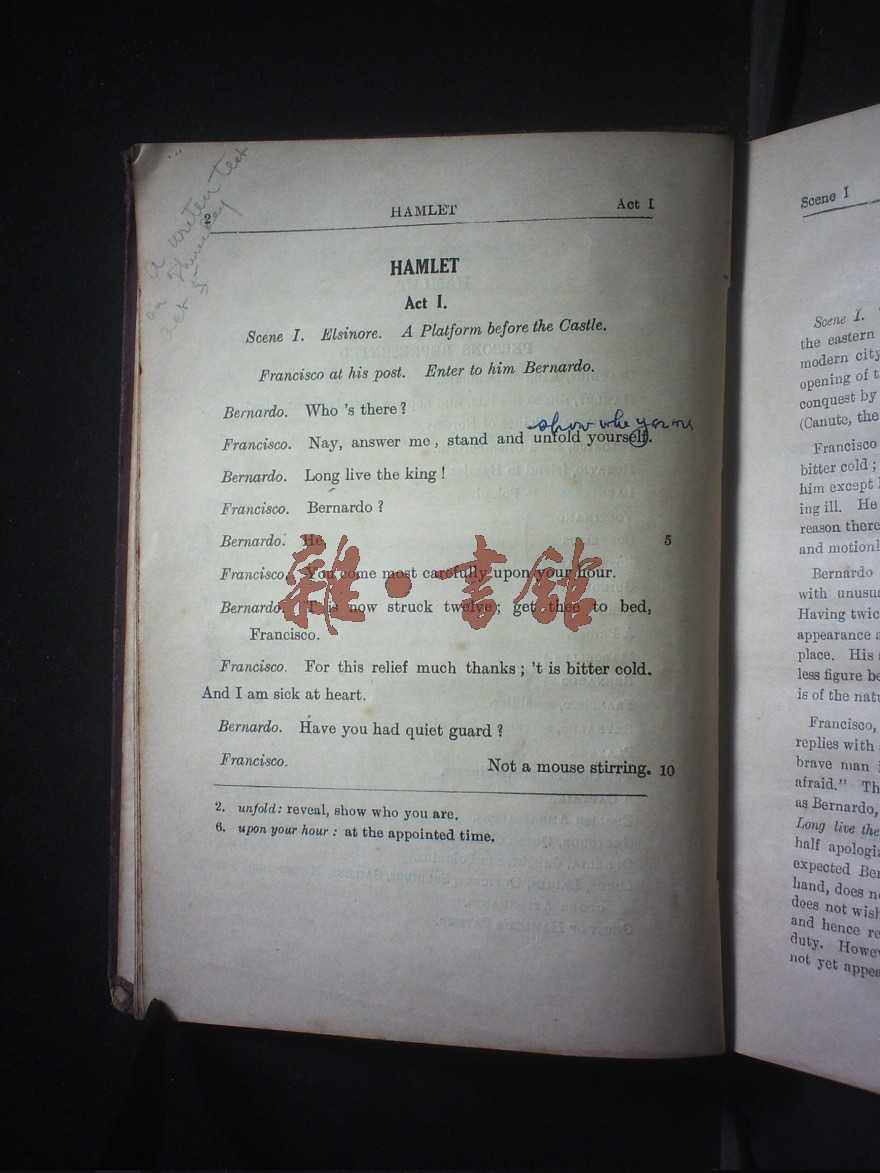 a written test
on Thursday
act 5
2 HAMLET Act I
HAMLET
Act I.
Scene I. Elsinore. A Platform before the Castle.
Francisco at his post. Enter to him Bernardo.
Bernardo. Who 's there?
show who you are
Francisco. Nay, answer me, stand and unfold yourself.
Bernardo. Long live the king!
Francisco. Bernardo?
Bernardo. He. 5
Francisco. You come most carefully upon your hour.
Bernardo. 'T is now struck twelve; get thee to bed,
Francisco.
Francisco. For this relief much thanks; 't is bitter cold.
And I am sick at heart.
Bernardo. Have you had quiet guard?
Francisco. Not a mouse stirring. 10
2. unfold: reveal, show who you are.
6. upon your hour: at the appointed time.
雜·書館
Scene I
Scene I.
the eastern
modern city
opening of
conquest by
(Canute, the
Francisco
bitter cold;
him except
ing ill. He
reason there
and motionl
Bernardo
with unusua
Having twic
appearance a
place. His
less figure be
is of the natu
Francisco,
replies with
brave man
afraid." Th
as Bernardo,
Long live the
half apologi
expected Ber
hand, does n
does not wish
and hence re
duty. Howev
not yet appea